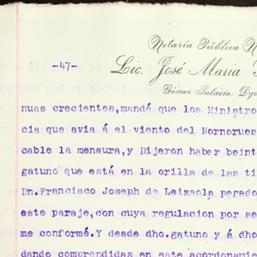 Notaría Pública N
-47-
Lic. José María
Gómez Palacio, Dgo
nuas crecientes,mandé que los Ministro
cia que avia á el viento del Nornorues
cable la mensura,y Dijeron haber beint
gatuno que está en la orilla de las ti
Dn.Francisco Joseph de Leizaola pegado
este paraje,con cuya regulacion por se
me conformé.Y desde dho.gatuno y á dho
dando comprendidas en este acordonamie